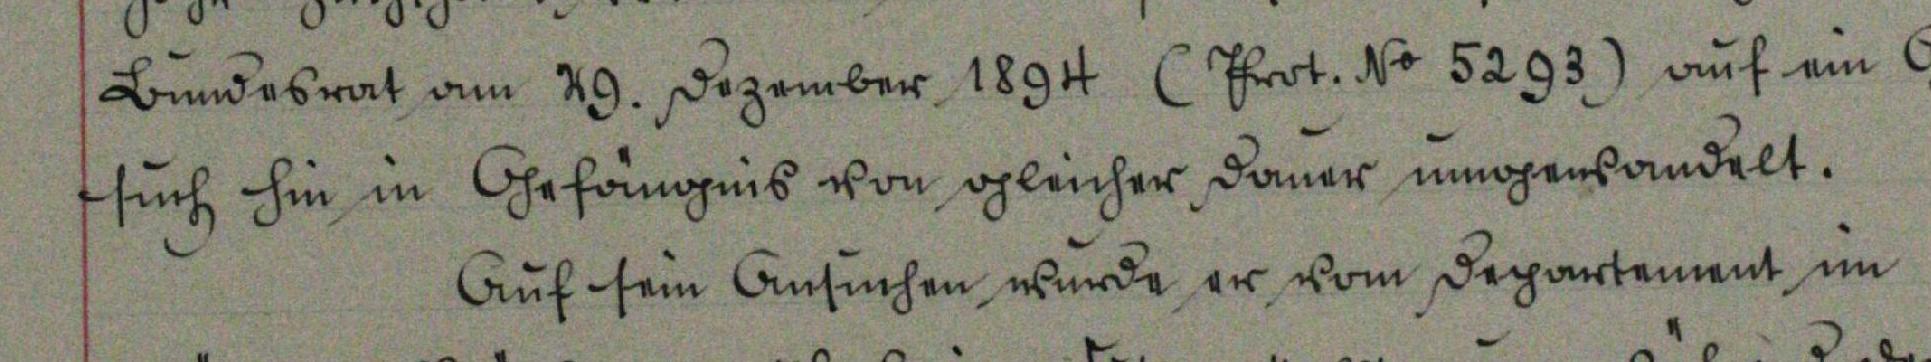 Bundesrat am 29. Dezember 1894 (Prot. No 5293) auf ein
such hin in Gefängnis von gleicher Dauer umgewandelt.
Auf sein Ansuchen wurde er vom Departement im